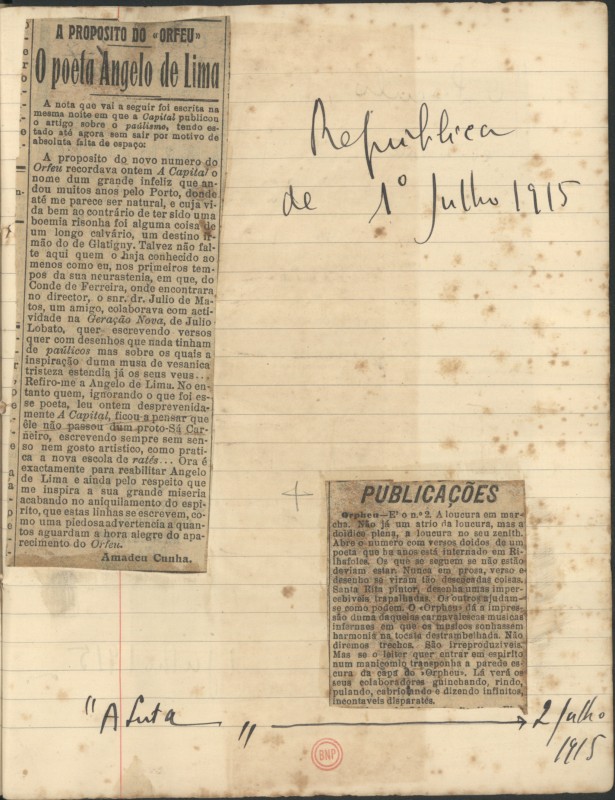 A PROPOSITO DO «ORFEU»
O poeta Angelo de Lima
A nota que vai a seguir foi escrita na
mesma noite em que a Capital publicou
o artigo sobre o paúlismo, tendo es-
tado até agora sem sair por motivo de
absoluta falta de espaço:
A proposito do novo numero do
Orfeu recordava ontem A Capital o
nome dum grande infeliz que an-
dou muitos anos pelo Porto, donde
até me parece ser natural, e cuja vi-
da bem ao contrário de ter sido uma
boemia risonha foi alguma coisa de
um longo calvário, um destino ir-
mão do de Glatigny. Talvez não fal-
te aqui quem o haja conhecido ao
menos como eu, nos primeiros tem-
pos da sua neurastenia, em que, do
Conde de Ferreira, onde encontrara
no director, o snr. dr. Julio de Ma-
tos, um amigo, colaborava com acti-
vidade na Geração Nova, de Julio
Lobato, quer escrevendo versos
quer com desenhos que nada tinham
de paúlicos mas sobre os quais a
inspiração duma musa de vesanica
tristeza estendia já os seus veus...
Refiro-me a Angelo de Lima. No en-
tanto quem, ignorando o que foi es-
se poeta, leu ontem desprevenida-
mente A Capital, ficou a pensar que
êle não passou dum proto-Sá Car-
neiro, escrevendo sempre sem sen-
so nem gosto artistico, como prati-
ca a nova escola de ratés... Ora é
exactamente para reabilitar Angelo
de Lima e ainda pelo respeito que
me inspira a sua grande miseria
acabando no aniquilamento do espí-
rito, que estas linhas se escrevem, co-
mo uma piedosa advertencia a quan-
tos aguardam a hora alegre do apa-
recimento do Orfeu.
Amadeu Cunha.
Republica
de 1º Julho 1915
PUBLICAÇÕES
Orpheu—E' o n.º 2. A loucura em mar-
cha. Não já um atrio da loucura, mas a
doidice plena, a loucura no seu zenith.
Abre o numero com versos doidos de um
poeta que ha anos está internado em Ri-
lhafoles. Os que se seguem se não estão
deviam estar. Nunca em prosa, verso e
desenho se viram tão descocadas coisas.
Santa Rita pintor, desenha umas imper-
cebiveis trapalhadas. Os outros ajudam-
se como podem. O «Orpheu» dá a impres-
são duma daquelas carnavalescas musicas
infernaes em que os musicos sonhassem
harmonia na tocata destrambelhada. Não
diremos trechos. São irreproduziveis.
Mas se o leitor quer entrar em espirito
num manicomio transponha a parede es-
cura da capa do «Orpheu». Lá verá os
seus colaboradores guinchando, rindo,
pulando, cabriolando e dizendo infinitos,
incontaveis disparates.
"A Luta" 2 Julho
1915
BNP